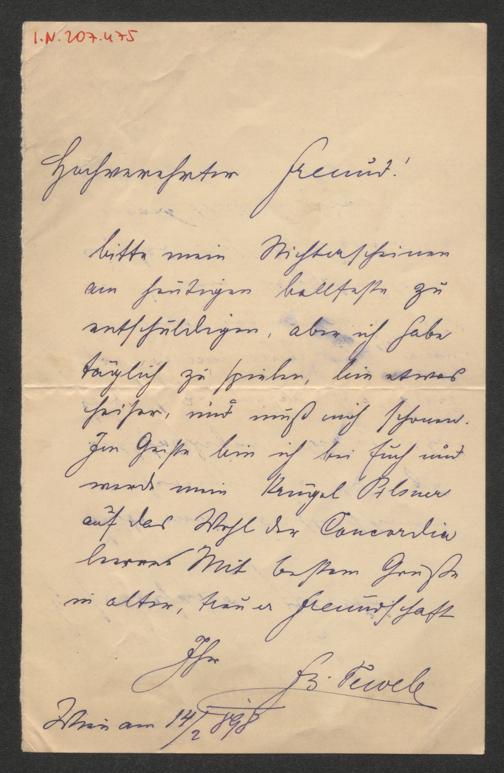 I.N. 207.475
Hochverehrter Freund!
bitte mein Nichterscheinen
am heutigen ballfeste zu
entschuldigen, aber ich habe
täglich zu spielen, bin etwas
heiser, und muß mich schonen.
Im Geiste bin ich bei Euch und
werde mein Krügel Pilsner
auf das Wohl der Concordia
leeren Mit bestem Gruße
in alter, treuer Freundschaft
Ihr
Fz. Tewele
Wien am 14/2 898